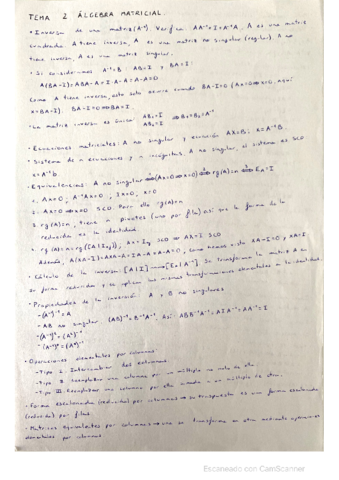 TEMA 2 ÁLGEBRA MATRICIAL.
• Inversa de una matriz (A⁻¹). Verifica AA⁻¹=I=A⁻¹A, A es una matriz
cuadrada. A tiene inversa, A es una matriz no singular (regular). A no
tiene inversa, A es una matriz singular.
• Si consideramos A⁻¹=B: AB=I y BA=I:
A(BA-I)=ABA-A=I·A-A=A-A=0
Como A tiene inversa, esto solo ocurre cuando BA-I=0 (Ax=0⇔x=0, aquí
x=BA-I). BA-I=0⇔BA=I.
• La matriz inversa es única: AB₁=I AB₂=I ⇒ B₁=B₂=A⁻¹
• Ecuaciones matriciales: A no singular y ecuación AX=B: X=A⁻¹B.
• Sistema de n ecuaciones y n incógnitas. A no singular, el sistema es SCD
x=A⁻¹b.
• Equivalencias: A no singular ⇔ (Ax=0⇔x=0) ⇔ rg(A)=n ⇔ E_A=I
1. Ax=0, A⁻¹Ax=0, Ix=0, x=0
2. Ax=0⇔x=0 SCD. Para ello rg(A)=n
3. rg(A)=n, tiene n pivotes (uno por fila) así que la forma de la
reducida es la identidad
4. rg(A)=n=rg([A|I]), AX=I SCD ⇔ AX=I SCD
Además, A(XA-I)=AXA-A=IA-A=A-A=0, como hemos visto XA-I=0, XA=I.
• Cálculo de la inversa: [A|I]→[I|A⁻¹]. Se transforma la matriz A en
su forma reducida y se aplican las mismas transformaciones elementales a la identidad.
• Propiedades de la inversión A y B no singulares
-(A⁻¹)⁻¹=A
-AB no singular (AB)⁻¹=B⁻¹A⁻¹. Así: ABB⁻¹A⁻¹=AIA⁻¹=AA⁻¹=I
• Operaciones elementales por columnas
-Tipo I. Intercambiar dos columnas.
-Tipo II. Reemplazar una columna por un múltiplo no nulo de ella.
-Tipo III. Reemplazar una columna por ella sumada a un múltiplo de otra.
• Forma escalonada (reducida) por columnas → su traspuesta es una forma escalonada
(reducida) por filas.
• Matrices equivalentes por columnas → una se transforma en otra mediante operaciones
elementales por columnas.
Escaneado con CamScanner